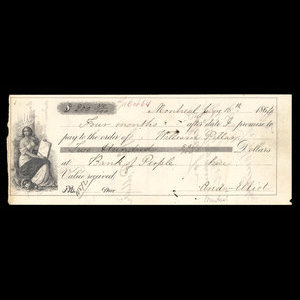 $ 200 00/100
Montreal, 15th 1864
Four months after date I promise to
pay to the order of William
Two Hundred Dollars
at Bank of People here
Value received.
Andw Elliot